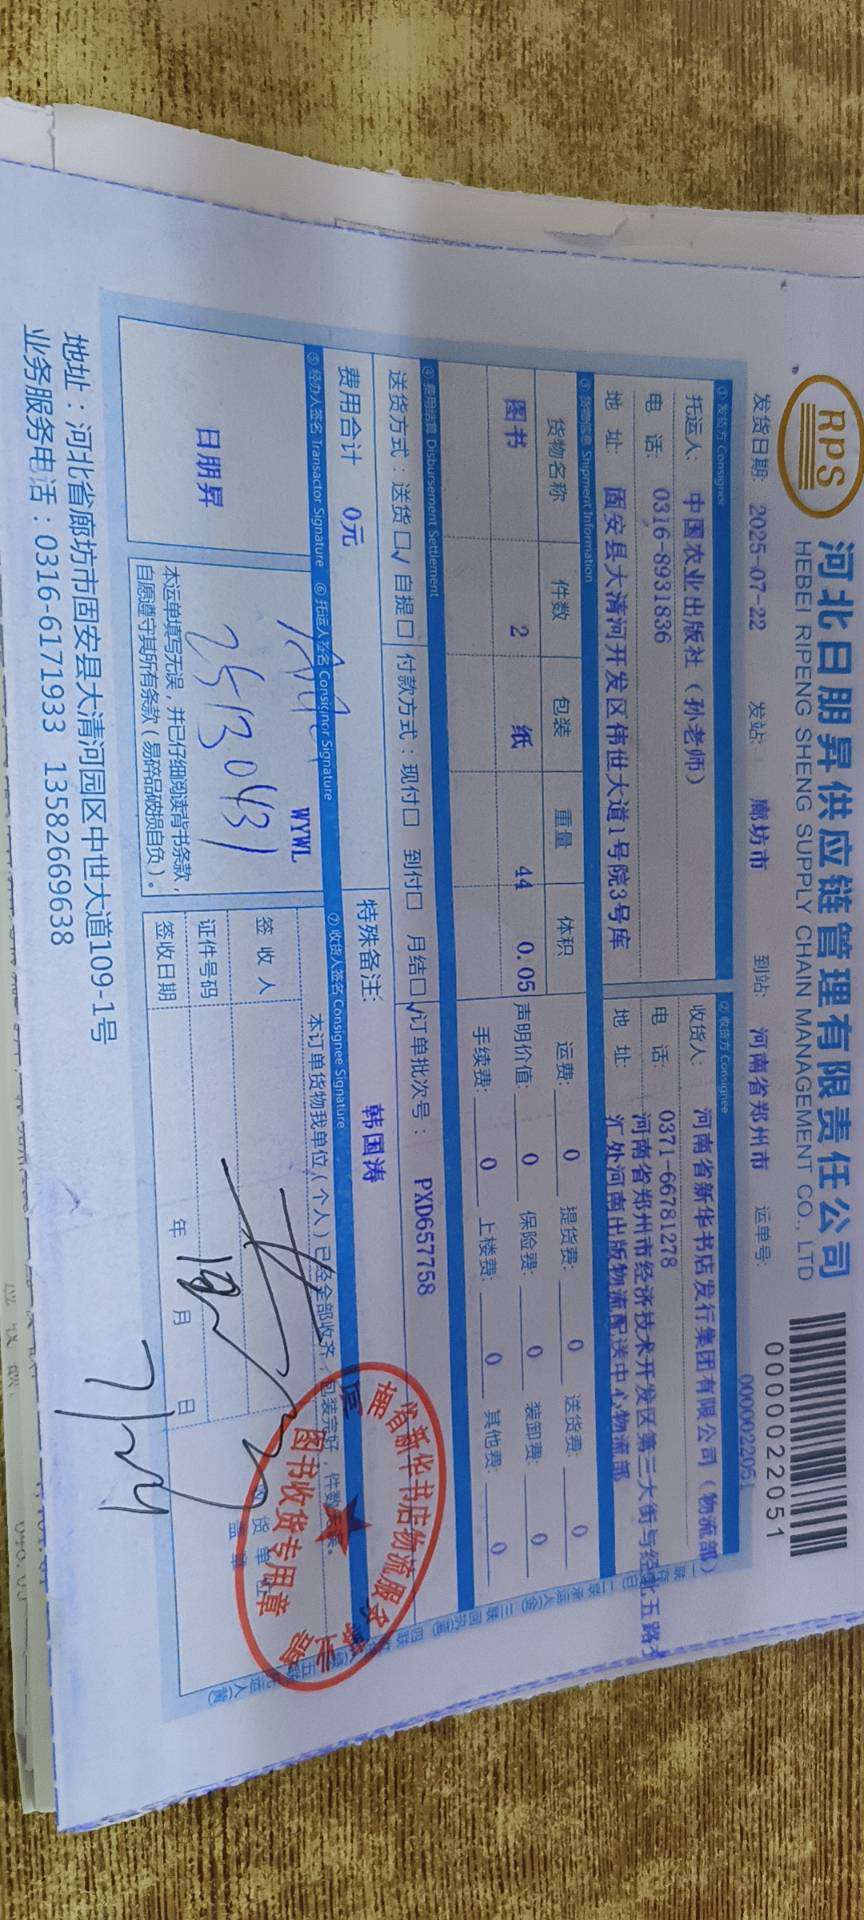 RPS
河北日朋昇供应链管理有限责任公司
HEBEI RIPENG SHENG SUPPLY CHAIN MANAGEMENT CO., LTD
0000022051
发货日期: 2025-07-22 发站: 廊坊市 到站: 河南省郑州市 运单号: 0000022051
① 发货方 Consignor ② 收货方 Consignee
托运人: 中国农业出版社（孙老师） 收货人: 河南省新华书店发行集团有限公司（物流部）
电 话: 0316-8931836 电 话: 0371-66781278
地 址: 固安县大清河开发区伟世大道1号院3号库 地 址: 河南省郑州市经济技术开发区第三大街与经北五路交
汇处河南出版物流配送中心物流部
③ 货物信息 Shipment Information
货物名称 件数 包装 重量 体积 运费: 0 提货费: 0 送货费: 0
图书 2 纸 44 0.05 声明价值: 0 保险费: 0 装卸费: 0
手续费: 0 上楼费: 0 其他费: 0
④ 费用结算 Disbursement Settlement
送货方式：送货口√ 自提口 付款方式：现付口 到付口 月结口√ 订单批次号： PXD657758
费用合计 0元 特殊备注: 韩国涛
⑤ 经办人签名 Transactor Signature ⑥ 托运人签名 Consignor Signature ⑦ 收货人签名 Consignee Signature
日朋昇
WYWL
2513043
本运单填写无误，并已仔细阅读背书条款，
自愿遵守其所有条款（易碎品破损自负）。
本订单货物我单位（个人）已经全部收齐，包装完好，件数
签 收 人
证件号码
签收日期 年 月 日
7/24
河南省新华书店物流服务
图书收货专用章
地址：河北省廊坊市固安县大清河园区中世大道109-1号
业务服务电话：0316-6171933 13582669638